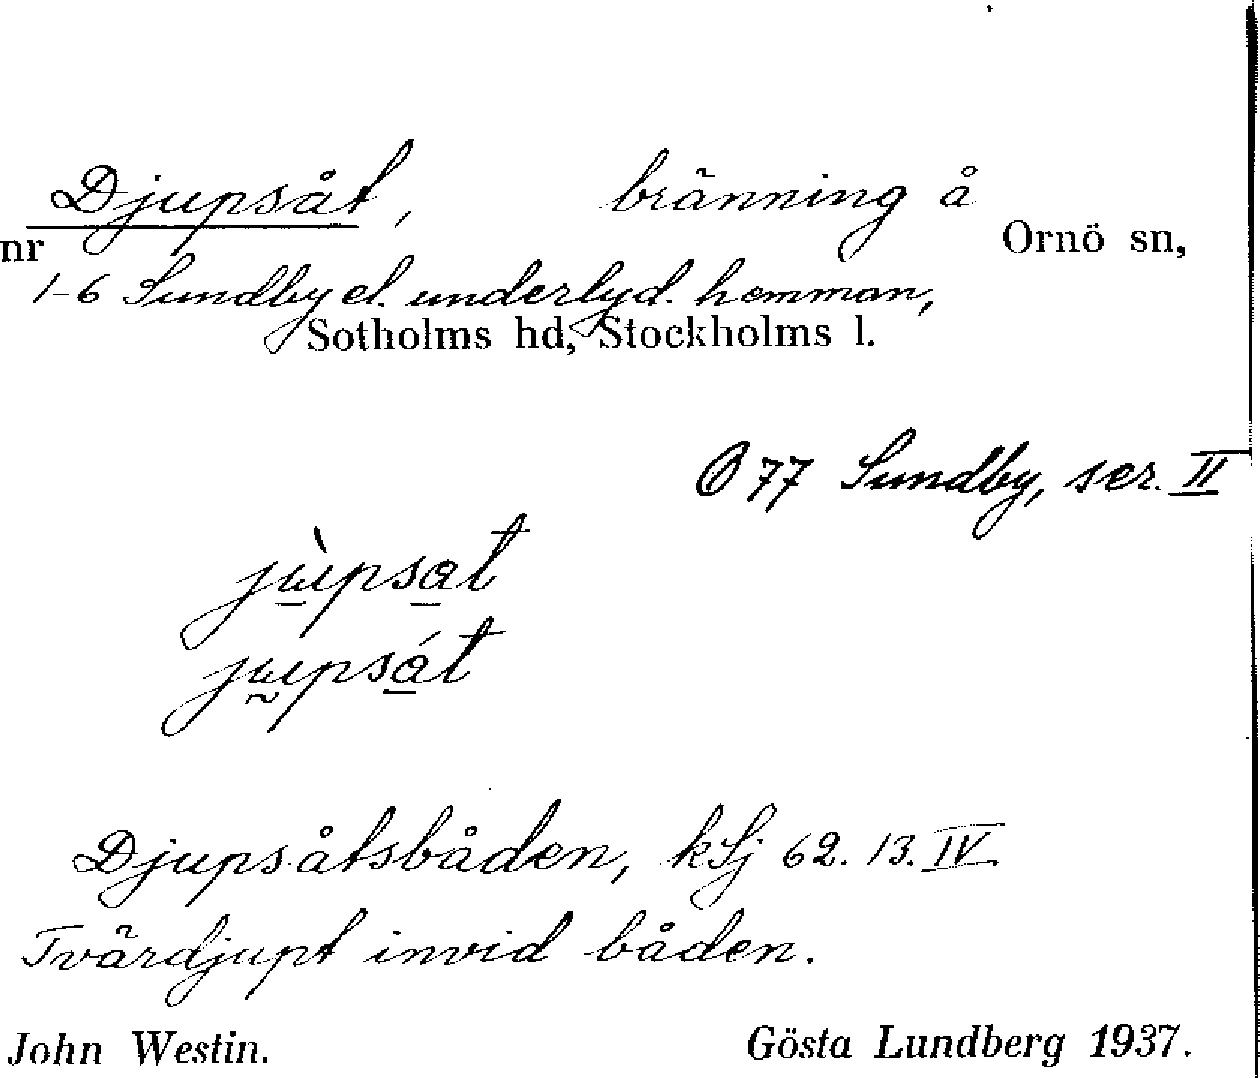 Djupsåt, bränning å
nr Ornö sn,
1-6 Sundby el. underlyd. hemman,
Sotholms hd, Stockholms l.
77 Sundby, ser. II
jùpsat
jupsát
Djupsåtsbåden, kSj 62. 13. IV
Tvärdjupt invid båden.
John Westin. Gösta Lundberg 1937.